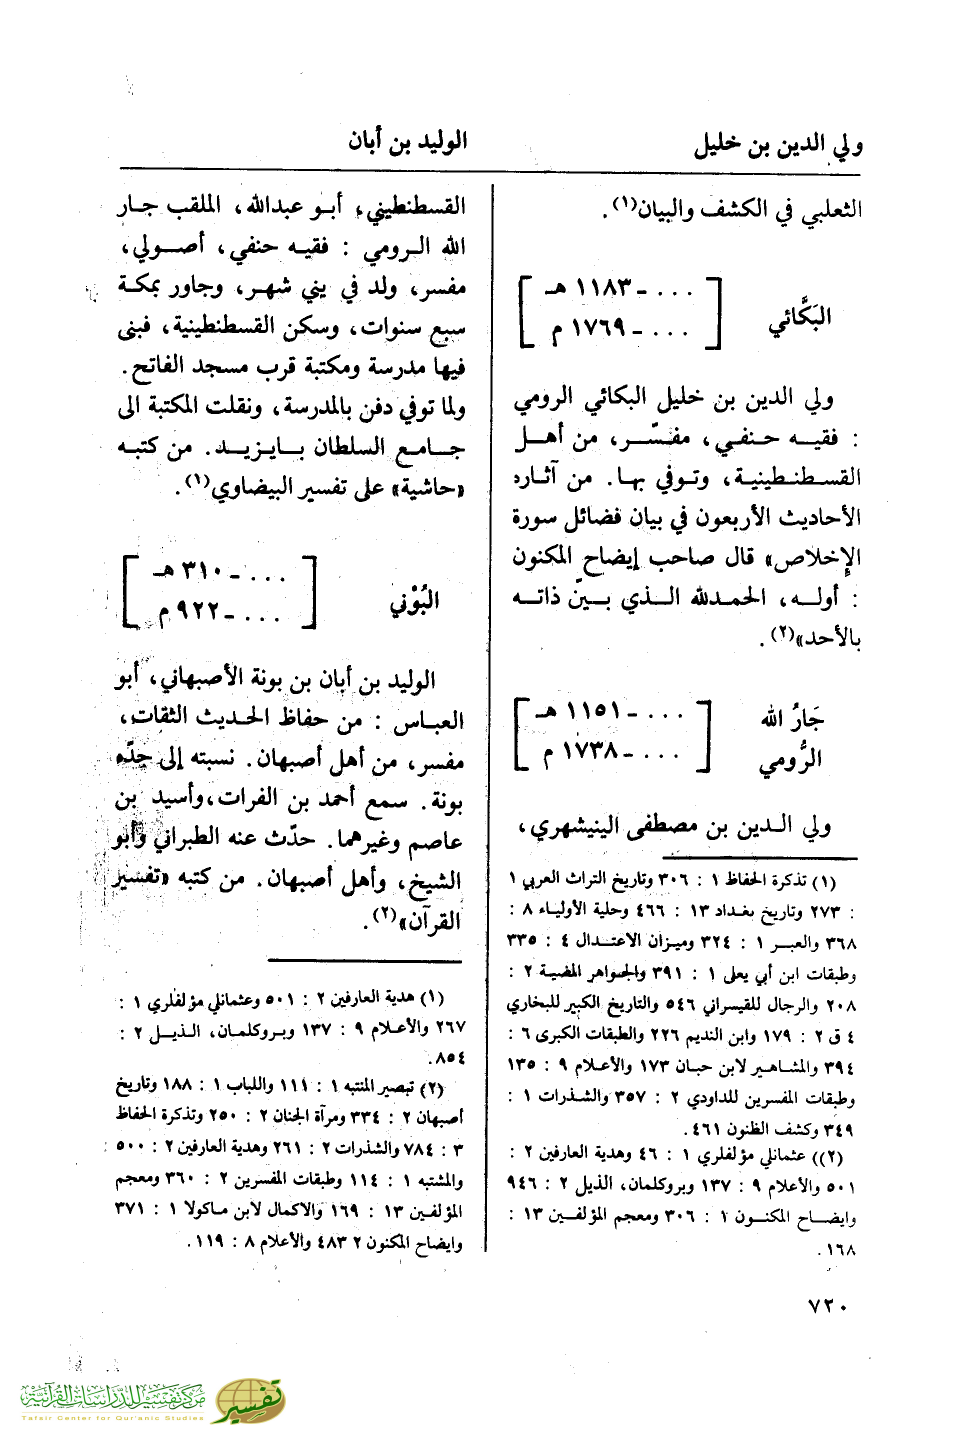 ولي الدين بن خليل
الوليد بن أبان
الثعلبي في الكشف والبيان(١).
البَكَّائي
[ ... ـ ١١٨٣ هـ
... ـ ١٧٦٩ م ]
ولي الدين بن خليل البكائي الرومي
: فقيه حنفي، مفسّر، من أهل
القسطنطينية، وتوفي بها. من آثاره
الأحاديث الأربعون في بيان فضائل سورة
الإخلاص» قال صاحب إيضاح المكنون
: أوله، الحمدلله الذي بيّن ذاته
بالأحد»(٢).
جَارُ الله
الرُّومي
[ ... ـ ١١٥١ هـ
... ـ ١٧٣٨ م ]
ولي الدين بن مصطفى الينيشهري،
(١) تذكرة الحفاظ ١ : ٣٠٦ وتاريخ التراث العربي ١
: ٢٧٣ وتاريخ بغداد ١٣ : ٤٦٦ وحلية الأولياء ٨ :
٣٦٨ والعبر ١ : ٣٢٤ وميزان الاعتدال ٤ : ٣٣٥
وطبقات ابن أبي يعلى ١ : ٣٩١ والجواهر المضية ٢ :
٢٠٨ والرجال للقيسراني ٥٤٦ والتاريخ الكبير للبخاري
٤ ق ٢ : ١٧٩ وابن النديم ٢٢٦ والطبقات الكبرى ٦ :
٣٩٤ والمشاهير لابن حبان ١٧٣ والأعلام ٩ : ١٣٥
وطبقات المفسرين للداودي ٢ : ٣٥٧ والشذرات ١ :
٣٤٩ وكشف الظنون ٤٦١.
(٢)) عثمانلي مؤلفلري ١ : ٤٦ وهدية العارفين ٢ :
٥٠١ والأعلام ٩ : ١٣٧ وبروكلمان، الذيل ٢ : ٩٤٦
وايضاح المكنون ١ : ٣٠٦ ومعجم المؤلفين ١٣ :
١٦٨.
القسطنطيني، أبو عبدالله، الملقب جار
الله الرومي : فقيه حنفي، أصولي،
مفسر، ولد في يني شهر، وجاور بمكة
سبع سنوات، وسكن القسطنطينية، فبنى
فيها مدرسة ومكتبة قرب مسجد الفاتح.
ولما توفي دفن بالمدرسة، ونقلت المكتبة الى
جامع السلطان بايزيد. من كتبه
«حاشية» على تفسير البيضاوي(١).
البُوْني
[ ... ـ ٣١٠ هـ
... ـ ٩٢٢ م ]
الوليد بن أبان بن بونة الأصبهاني، أبو
العباس : من حفاظ الحديث الثقات،
مفسر، من أهل أصبهان. نسبته إلى جدّه
بونة. سمع أحمد بن الفرات، وأسيد بن
عاصم وغيرهما. حدّث عنه الطبراني وأبو
الشيخ، وأهل أصبهان. من كتبه «تفسير
القرآن»(٢).
(١) هدية العارفين ٢ : ٥٠١ وعثمانلي مؤلفلري ١ :
٢٦٧ والأعلام ٩ : ١٣٧ وبروكلمان، الذيل ٢ :
٨٥٤.
(٢) تبصير المنتبه ١ : ١١١ واللباب ١ : ١٨٨ وتاريخ
أصبهان ٢ : ٣٣٤ ومرآة الجنان ٢ : ٢٥٠ وتذكرة الحفاظ
٣ : ٧٨٤ والشذرات ٢ : ٢٦١ وهدية العارفين ٢ : ٥٠٠
والمشتبه ١ : ١١٤ وطبقات المفسرين ٢ : ٣٦٠ ومعجم
المؤلفين ١٣ : ١٦٩ والاكمال لابن ماكولا ١ : ٣٧١
وايضاح المكنون ٢ ٤٨٣ والأعلام ٨ : ١١٩.
٧٢٠
مركز تفسير للدراسات القرآنية
Tafsir Center for Qur'anic Studies
تفسير